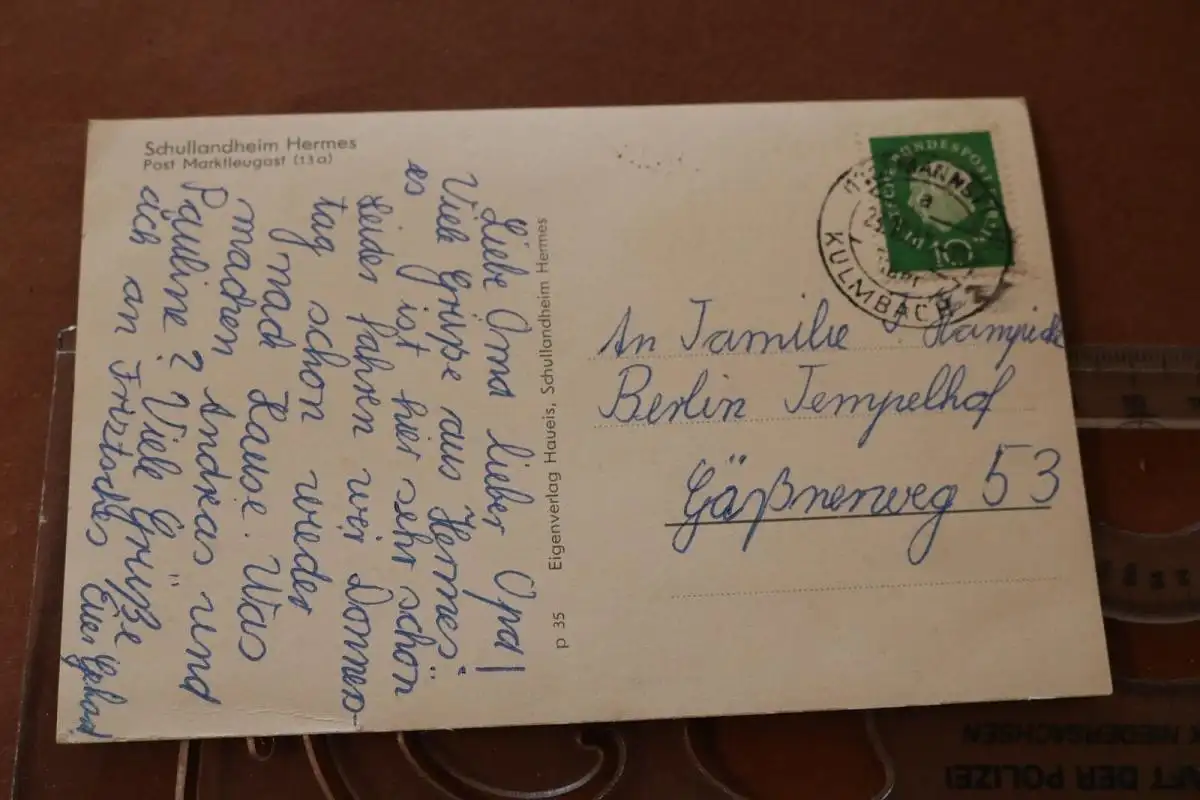 Schullandheim Hermes
Post Marktleugast (13a)
Liebe Oma lieber Opa!
Viele Grüße aus Hermes.
es ist hier sehr schön
Leider fahren wir Donners-
tag schon wieder
nach Hause. Was
machen Andreas und
Pauline? Viele Grüße
ach an Fritzsches Euer Gerhard
p 35 Eigenverlag Haueis, Schullandheim Hermes
DEUTSCHE BUNDESPOST BERLIN
10
a
KULMBACH
An Familie
Berlin Tempelhof
Gäßnerweg 53
NIEDERSACHSEN
DER POLIZEI